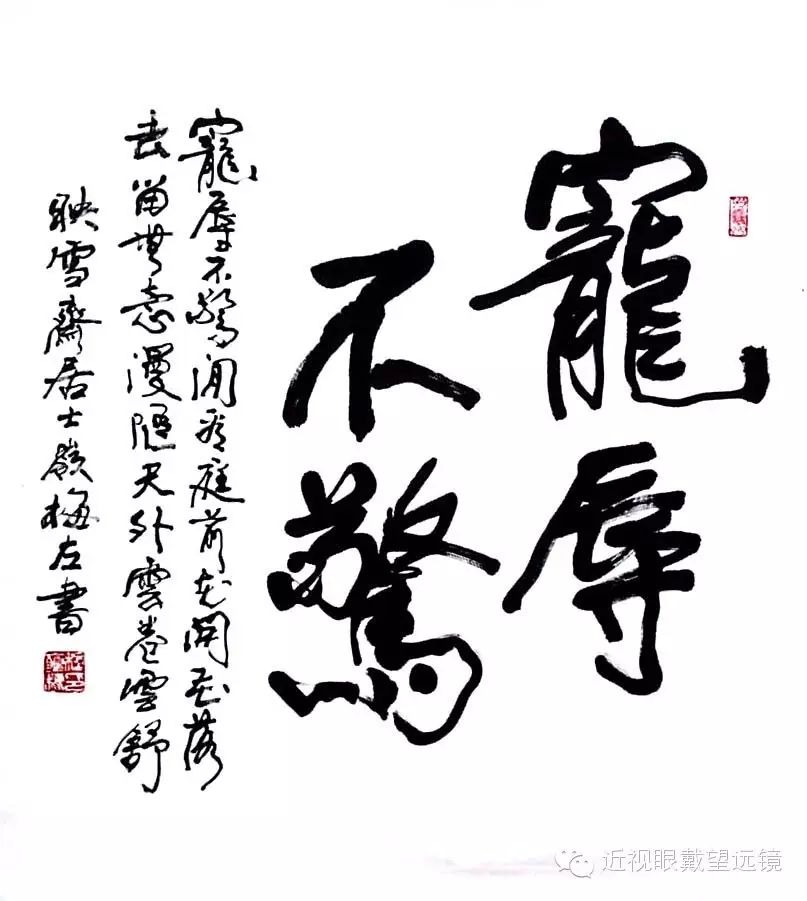 寵辱
不驚
寵辱不驚閒看庭前花開花落
去留無意漫隨天外雲卷雲舒
映雪齋居士嶺梅左書
近视眼戴望远镜